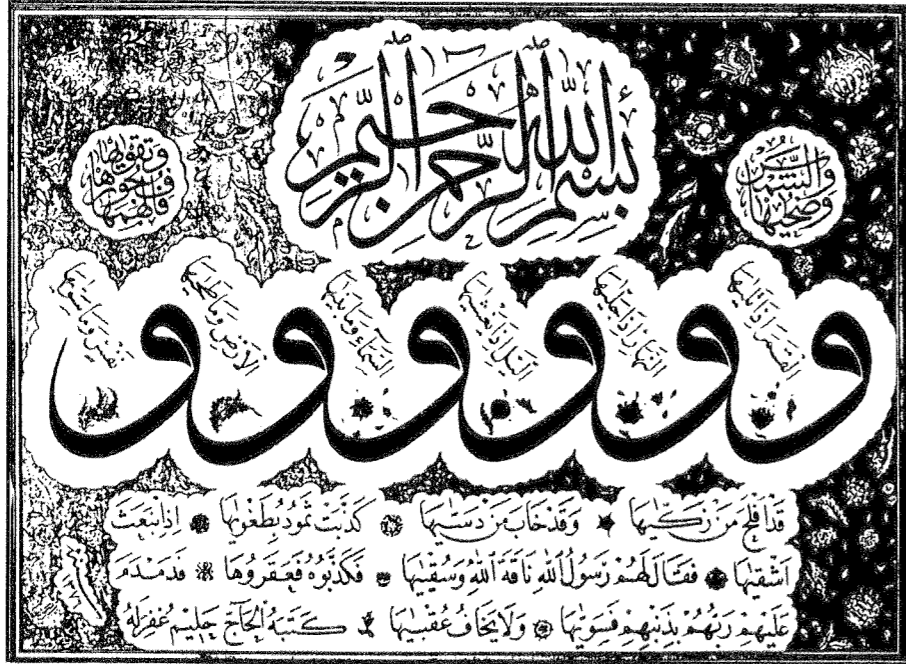 بِسْمِ اللهِ الرَّحْمٰنِ الرَّحِيمِ
وَالشَّمْسِ وَضُحٰيهَا
وَ الْقَمَرِ اِذَا تَلٰيهَا
وَ النَّهَارِ اِذَا جَلّٰيهَا
وَ الَّيْلِ اِذَا يَغْشٰيهَا
وَ السَّمَاءِ وَمَا بَنٰيهَا
وَ الْاَرْضِ وَمَا طَحٰيهَا
وَ نَفْسٍ وَمَا سَوّٰيهَا
فَاَلْهَمَهَا فُجُورَهَا وَتَقْوٰيهَا
قَدْ اَفْلَحَ مَنْ زَكّٰيهَا وَقَدْ خَابَ مَنْ دَسّٰيهَا كَذَّبَتْ ثَمُودُ بِطَغْوٰيهَا اِذِ انْبَعَثَ
اَشْقٰيهَا فَقَالَ لَهُمْ رَسُولُ اللهِ نَاقَةَ اللهِ وَسُقْيٰيهَا فَكَذَّبُوهُ فَعَقَرُوهَا فَدَمْدَمَ
عَلَيْهِمْ رَبُّهُمْ بِذَنْبِهِمْ فَسَوّٰيهَا وَلَا يَخَافُ عُقْبٰيهَا كَتَبَهُ الْحَاجّ حَلِيمْ غُفِرَ لَهُ